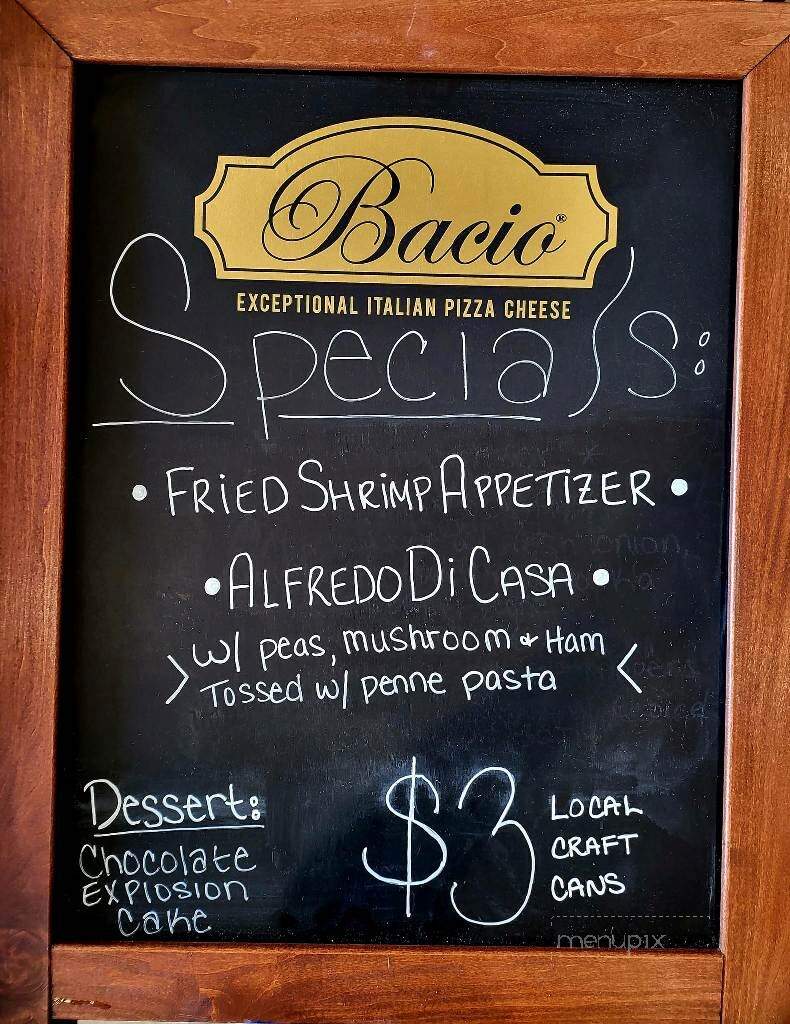 Bacio®
EXCEPTIONAL ITALIAN PIZZA CHEESE
Specials:
• FRIED SHRIMP APPETIZER •
• ALFREDO Di CASA •
w/ peas, mushroom & Ham
Tossed w/ penne pasta
Dessert:
Chocolate
Explosion
Cake
$3 LOCAL
CRAFT
CANS
menupix